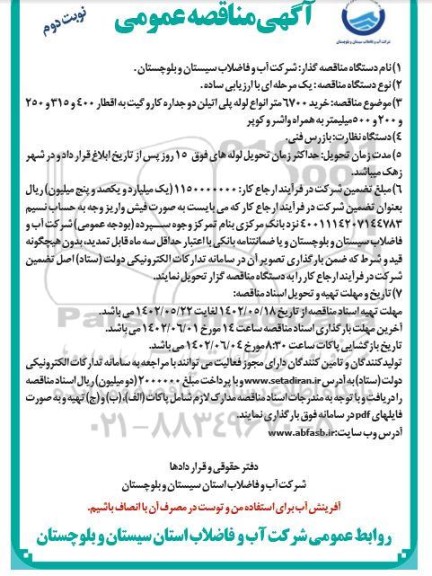 آگهی مناقصه عمومی
نوبت دوم
شرکت آب و فاضلاب سیستان و بلوچستان
۱) نام دستگاه مناقصه گذار: شرکت آب و فاضلاب سیستان و بلوچستان.
۲) نوع دستگاه مناقصه : یک مرحله ای با ارزیابی ساده.
۳) موضوع مناقصه: خرید ۶۷۰۰ متر انواع لوله پلی اتیلن دو جداره کاروگیت به اقطار ۴۰۰ و ۳۱۵ و ۲۵۰
و ۲۰۰ و ۵۰۰ میلیمتر به همراه واشر و کوپلر
۴) دستگاه نظارت: بازرس فنی.
۵) مدت زمان تحویل: حداکثر زمان تحویل لوله های فوق ۱۵ روز پس از تاریخ ابلاغ قرارداد و در شهر
زهک میباشد.
۶) مبلغ تضمین شرکت در فرآیند ارجاع کار: ۱۱۵۰۰۰۰۰۰۰ (یک میلیارد و یکصد و پنج میلیون) ریال
بعنوان تضمین شرکت در فرآیند ارجاع کار که می بایست به صورت فیش واریز وجه به حساب نسیم
۴۰۰۱۱۱۴۲۰۷۱۴۴۷۸۳ نزد بانک مرکزی بنام تمرکز وجوه سپرده (بودجه عمومی) شرکت آب و
فاضلاب سیستان و بلوچستان و یا ضمانتنامه بانکی با اعتبار حداقل سه ماه قابل تمدید، بدون هیچگونه
قید و شرط که ضمن بارگذاری تصویر آن در سامانه تدارکات الکترونیکی دولت (ستاد) اصل تضمین
شرکت در فرآیند ارجاع کار را به دستگاه مناقصه گزار تحویل نمایند.
۷) تاریخ و مهلت تهیه و تحویل اسناد مناقصه:
مهلت تهیه اسناد مناقصه از تاریخ ۱۴۰۲/۰۵/۱۸ لغایت ۱۴۰۲/۰۵/۲۲ می باشد.
آخرین مهلت بارگذاری اسناد مناقصه ساعت ۱۴ مورخ ۱۴۰۲/۰۶/۰۱ می باشد.
تاریخ بازگشایی پاکات ساعت ۸:۳۰ مورخ ۱۴۰۲/۰۶/۰۴ می باشد.
تولیدکنندگان و تامین کنندگان دارای مجوز فعالیت می توانند با مراجعه به سامانه تدارکات الکترونیکی
دولت (ستاد) به آدرس www.setadiran.ir و با پرداخت مبلغ ۲۰۰۰۰۰۰ (دو میلیون) ریال اسناد مناقصه
را دریافت و با توجه به مندرجات اسناد مناقصه مدارک لازم شامل پاکات (الف)، (ب) و (ج) تهیه و به صورت
فایلهای pdf در سامانه فوق بارگذاری نمایند.
آدرس وب سایت: www.abfasb.ir
۰۲۱-۸۸۳۴۹۶۷۰-۵
دفتر حقوقی و قراردادها
شرکت آب و فاضلاب استان سیستان و بلوچستان
آفرینش آب برای استفاده من و توست در مصرف آن با انصاف باشیم.
روابط عمومی شرکت آب و فاضلاب استان سیستان و بلوچستان